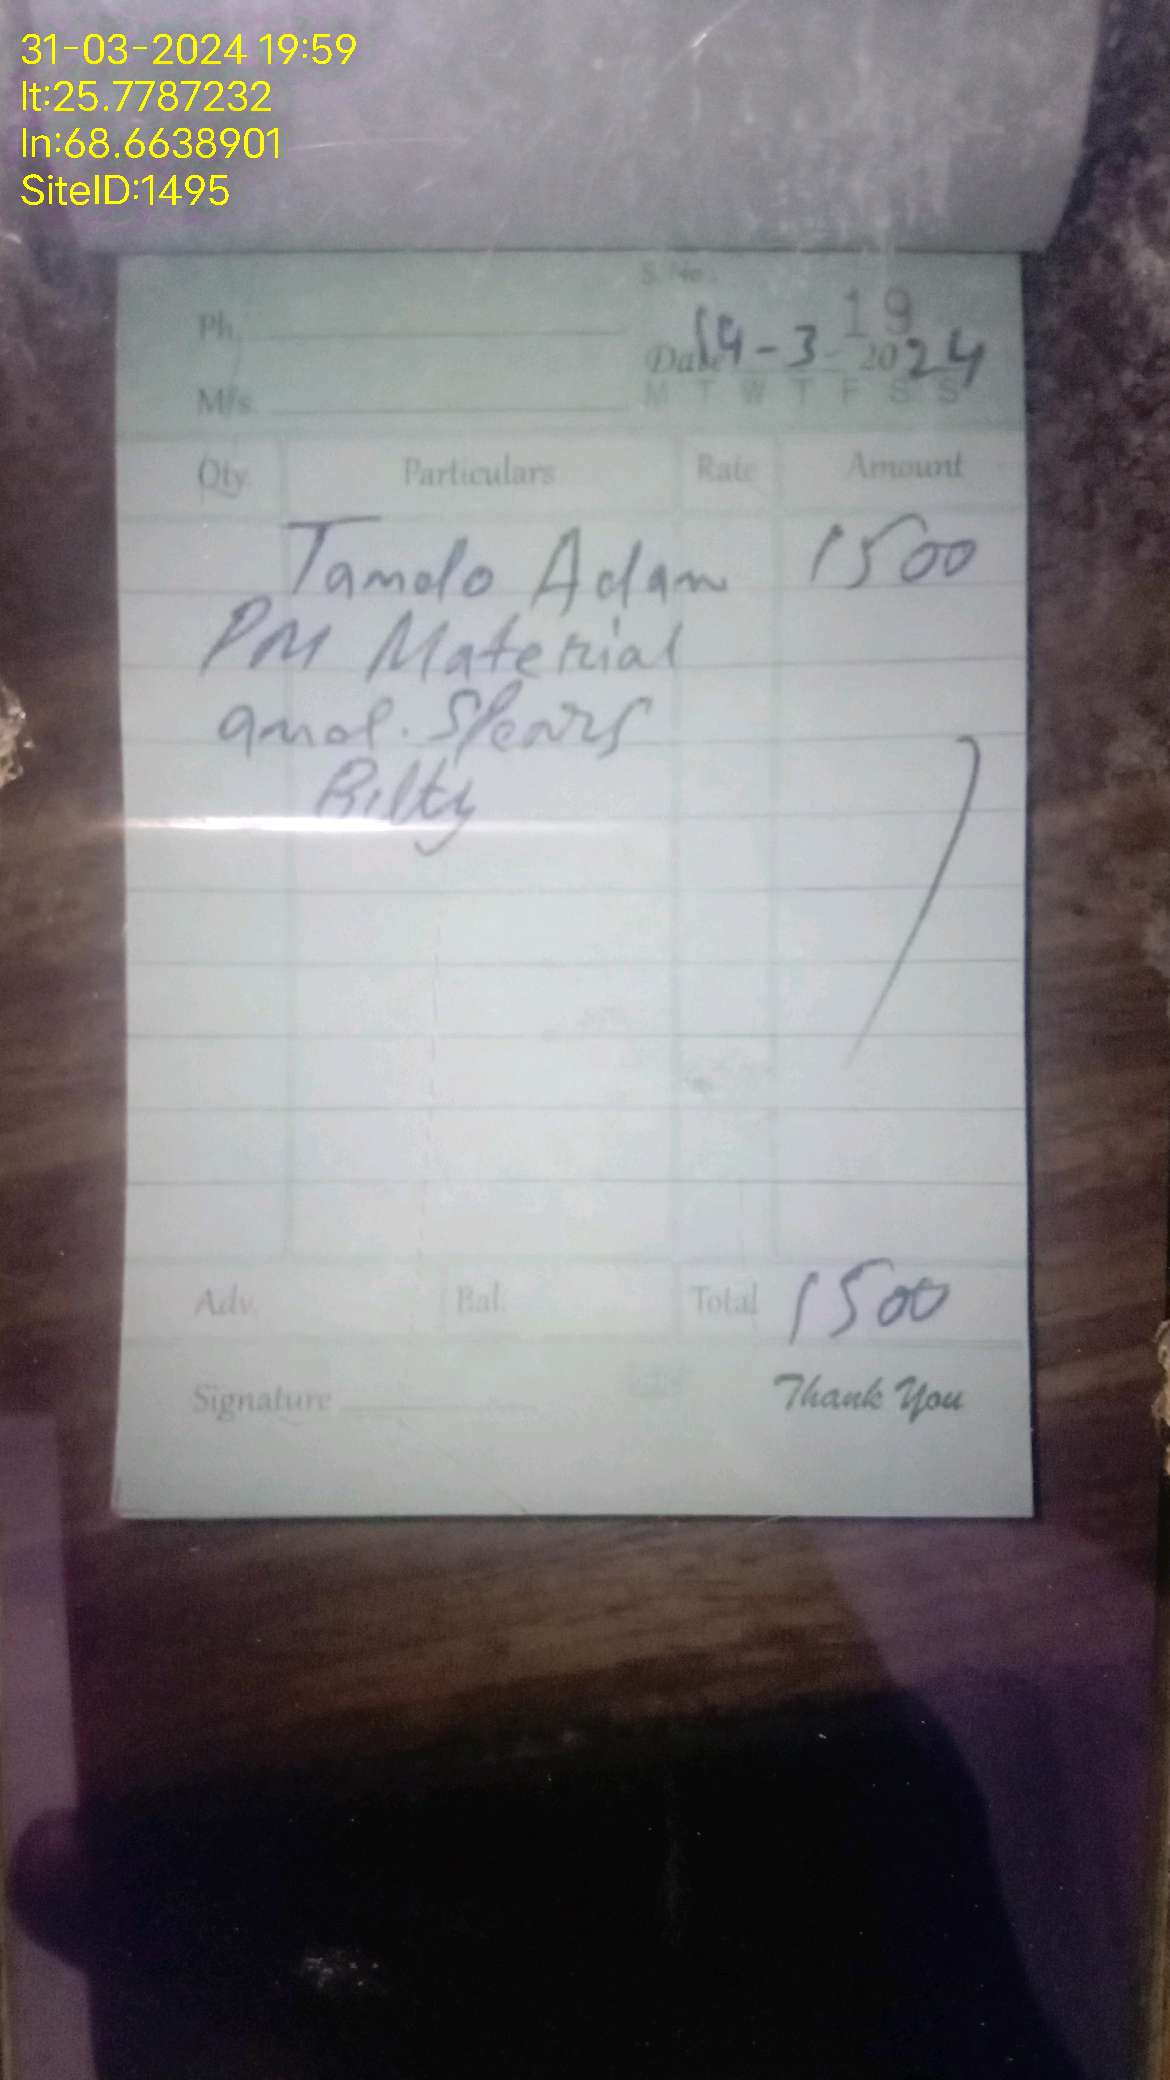 31-03-2024 19:59
lt:25.7787232
ln:68.6638901
SiteID:1495
S. No.
19
Ph.
Date 14-3-2024
M T W T F S S
M/s.
Qty. Particulars Rate Amount
Tando Adam 1500
PM Material
and. Spears
Bilty
Adv. Bal. Total 1500
Signature
Thank You